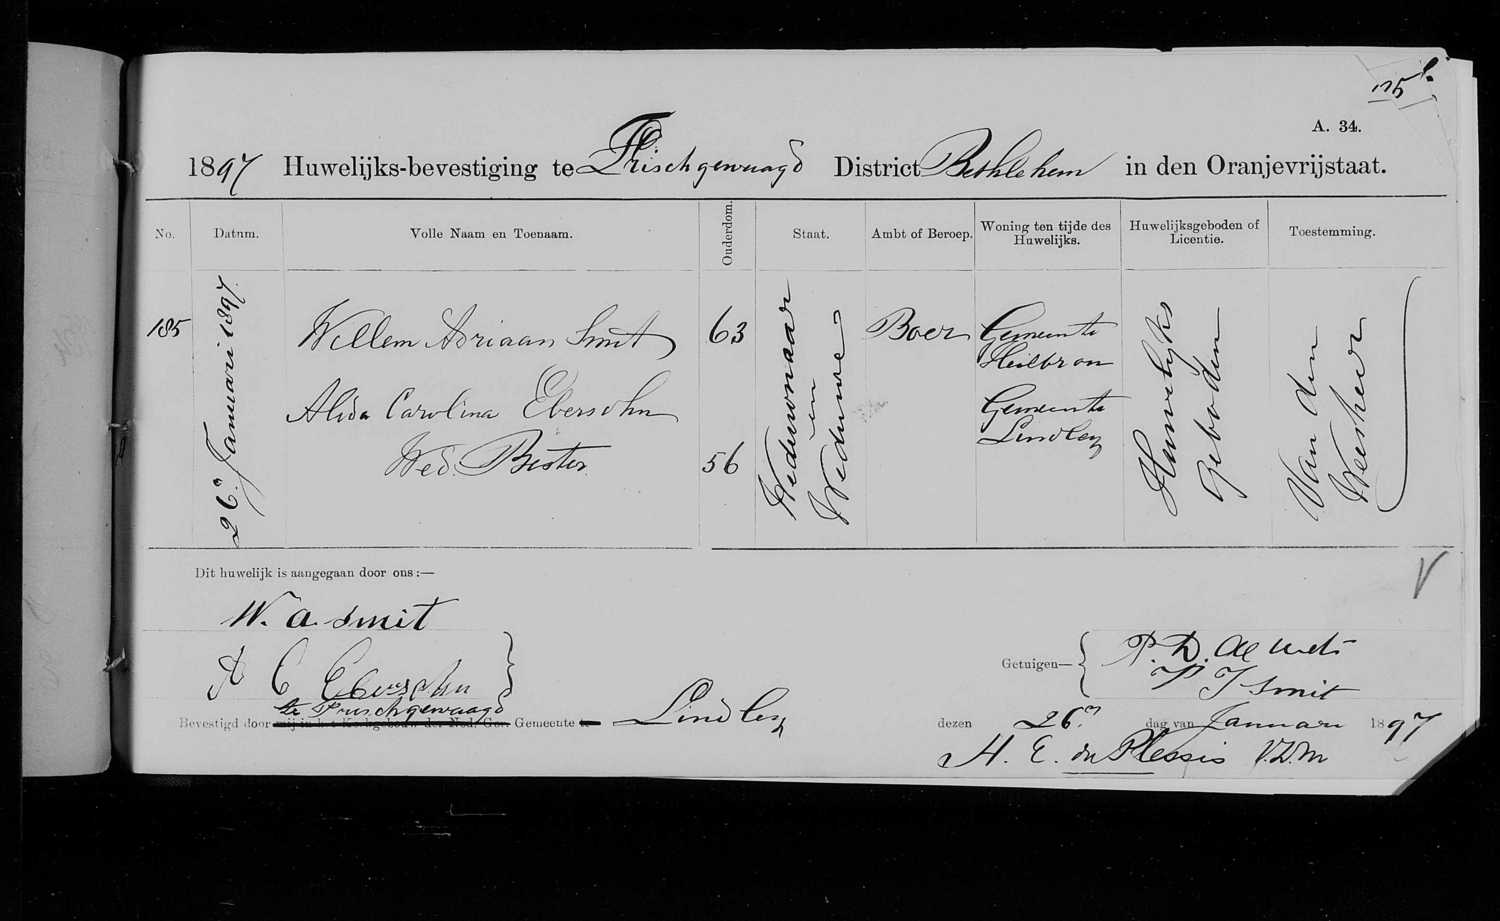 A. 34.
1897 Huwelijks-bevestiging te Frischgewaagd District Bethlehem in den Oranjevrijstaat.
No. Datum. Volle Naam en Toenaam. Ouderdom. Staat. Ambt of Beroep. Woning ten tijde des Huwelijks. Huwelijksgeboden of Licentie. Toestemming.
185
26n Januari 1897.
Willem Adriaan Smit
63
Alida Carolina Ebersohn
Wed. Bester
56
Weduwnaar
en
Weduwe
Boer
Gemeente
Heilbron
Gemeente
Lindley
Huwelijks
Geboden
Van den
Weesheer
Dit huwelijk is aangegaan door ons:—
W. A. Smit
A C Ebersohn
Getuigen—
P. D. de Wet
P J Smit
te Frischgewaagd
Bevestigd door mij in het Kerkgebouw der Ned. Ger. Gemeente te Lindley dezen 26n dag van Januari 1897
H. E. du Plessis V.D.M